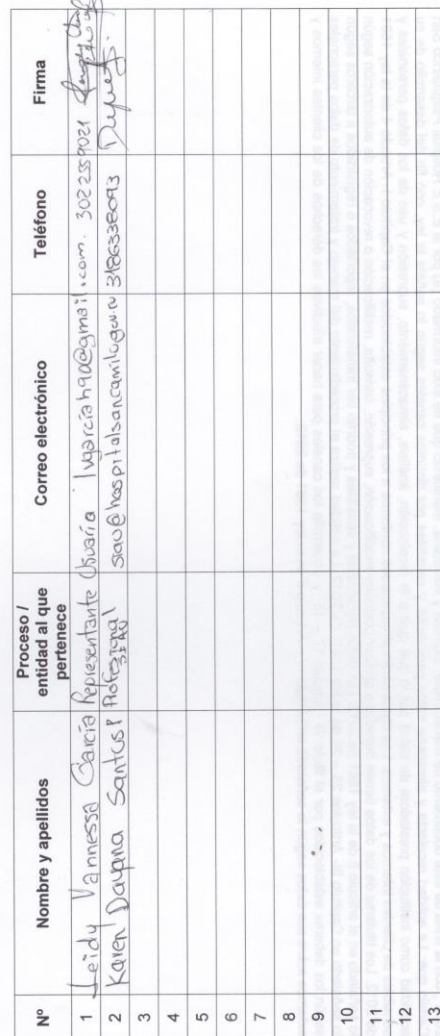 Nº Nombre y apellidos Proceso / entidad al que pertenece Correo electrónico Teléfono Firma
1 Leidy Vannessa Garcia Representante Usuaria lvgarciah90@gmail.com. 3022359021
2 Karen Dayana Santos P Profesional SIAU siau@hospitalsancamilo.gov.co 3186338093
3
4
5
6
7
8
9
10
11
12
13